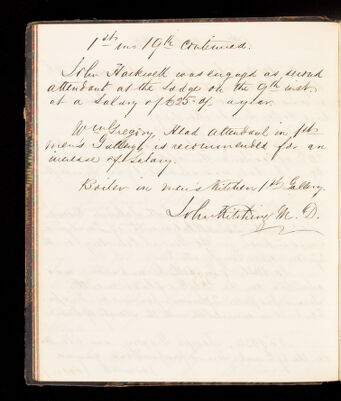 1st mo 19th Continued.
John Hackwell was engaged as second
attendant at the Lodge on the 9th inst.
at a Salary of £25 of a year.
Wm Gregory Head Attendant in 1st
men's Gallery is recommended for an
increase of Salary.
Boiler in men's Kitchen 1st Gallery.
John Kitching M. D.